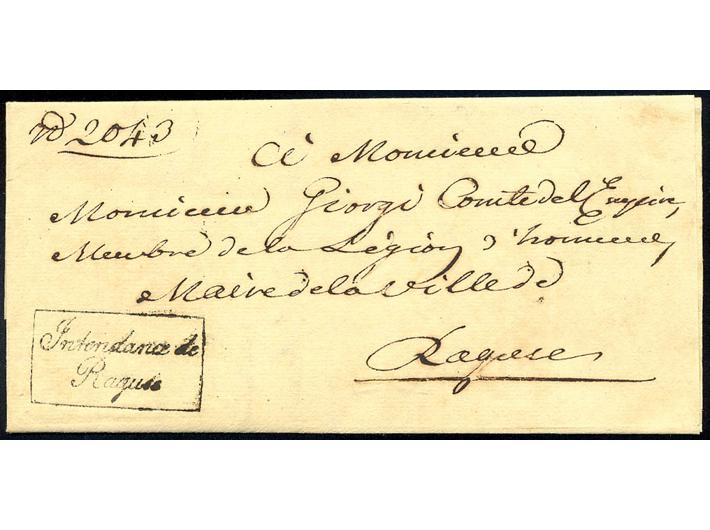 no 2043
A Monsieur
Monsieur Giorgi Comte de l'Empire,
Membre de la Légion d'honneur,
Maire de la Ville de
Raguse
Intendance de
Raguse